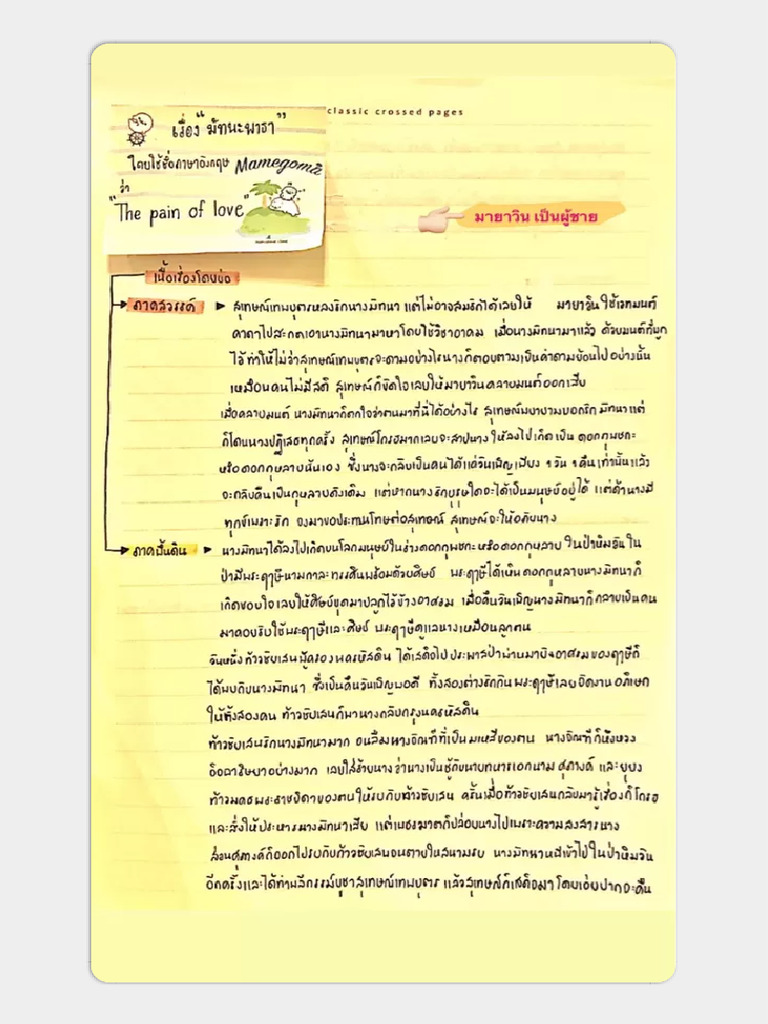 classic crossed pages
เรื่อง "มัทนะพาธา"
โดยใช้ชื่อภาษาอังกฤษ Mamegoma
ว่า
"The pain of love"
มายาวิน เป็นผู้ชาย
เนื้อเรื่องโดยย่อ
ภาคสวรรค์ สุเทษณ์เทพบุตรหลงรักนางมัทนา แต่ไม่อาจสมรักได้เลยให้ มายาวินใช้เวทมนต์
คาถาไปสะกดเอานางมัทนามาหาโดยใช้วิชาอาคม เมื่อนางมัทนามาแล้ว ด้วยมนต์ที่ผูก
ไว้ ทำให้ไม่ว่าสุเทษณ์เทพบุตรจะถามอย่างไรนางก็ตอบตามเป็นคำถามย้อนไปอย่างนั้น
เหมือนคนไม่มีสติ สุเทษณ์ก็ขัดใจเลยให้มายาวินคลายมนต์ออกเสีย
เมื่อคลายมนต์ นางมัทนาก็ตกใจว่าตนมาที่นี่ได้อย่างไร สุเทษณ์พยายามบอกรัก มัทนาแต่
ก็โดนนางปฏิเสธทุกครั้ง สุเทษณ์โกรธมากเลยจะสาปนาง ให้ลงไปเกิดเป็น ดอกกุพชกะ
หรือดอกกุหลาบนั่นเอง ซึ่งนางจะกลับเป็นคนได้แค่วันเพ็ญเพียง 1 วัน 1 คืนเท่านั้นแล้ว
จะกลับคืนเป็นกุหลาบดังเดิม แต่หากนางรักบุรุษใดจะได้เป็นมนุษย์อยู่ได้ แต่ถ้านางมี
ทุกข์เพราะรัก จงมาขอประทานโทษต่อสุเทษณ์ สุเทษณ์จะให้อภัยนาง
ภาคพื้นดิน นางมัทนาได้ลงไปเกิดบนโลกมนุษย์ในร่างดอกกุพชกะหรือดอกกุหลาบ ในป่าหิมวัน ใน
ป่ามีพระฤาษีนามกาละทรรศินพร้อมด้วยศิษย์ พระฤาษีได้เห็นดอกกุหลาบนางมัทนาก็
เกิดชอบใจเลยให้ศิษย์ขุดมาปลูกไว้ข้างอาศรม เมื่อคืนวันเพ็ญนางมัทนาก็กลายเป็นคน
มาคอยรับใช้พระฤาษีและศิษย์ พระฤาษีดูแลนางเหมือนลูกตน
วันหนึ่งท้าวชัยเสน ผู้ครองนครหัสดิน ได้เสด็จไปประพาสป่าผ่านมายังอาศรมของฤาษีก็
ได้พบกับนางมัทนา ซึ่งเป็นคืนวันเพ็ญพอดี ทั้งสองต่างรักกันพระฤาษีเลยจัดงานอภิเษก
ให้ทั้งสองคน ท้าวชัยเสนก็พานางกลับกรุงนครหัสดิน
ท้าวชัยเสนรักนางมัทนามาก จนลืมนางจัณฑีที่เป็นมเหสีของตน นางจัณฑีก็หึงหวง
อิจฉาริษยาอย่างมาก เลยใส่ร้ายนางว่านางเป็นชู้กับนายทหารเอกนาม ศุภางค์ และยุยง
ท้าวมคธพระราชบิดาของตนให้รบกับท้าวชัยเสน ครั้นเมื่อท้าวชัยเสนกลับมารู้เรื่องก็โกรธ
และสั่งให้ประหารนางมัทนาเสีย แต่เพชฌฆาตก็ปล่อยนางไปเพราะความสงสารนาง
ส่วนศุภางค์ก็ออกไปรบกับท้าวชัยเสนจนตายในสนามรบ นางมัทนาหนีเข้าไปในป่าหิมวัน
อีกครั้งและได้ทำพลีกรรม์บูชาสุเทษณ์เทพบุตร แล้วสุเทษณ์ก็เสด็จมา โดยเอ่ยปากจะคืน